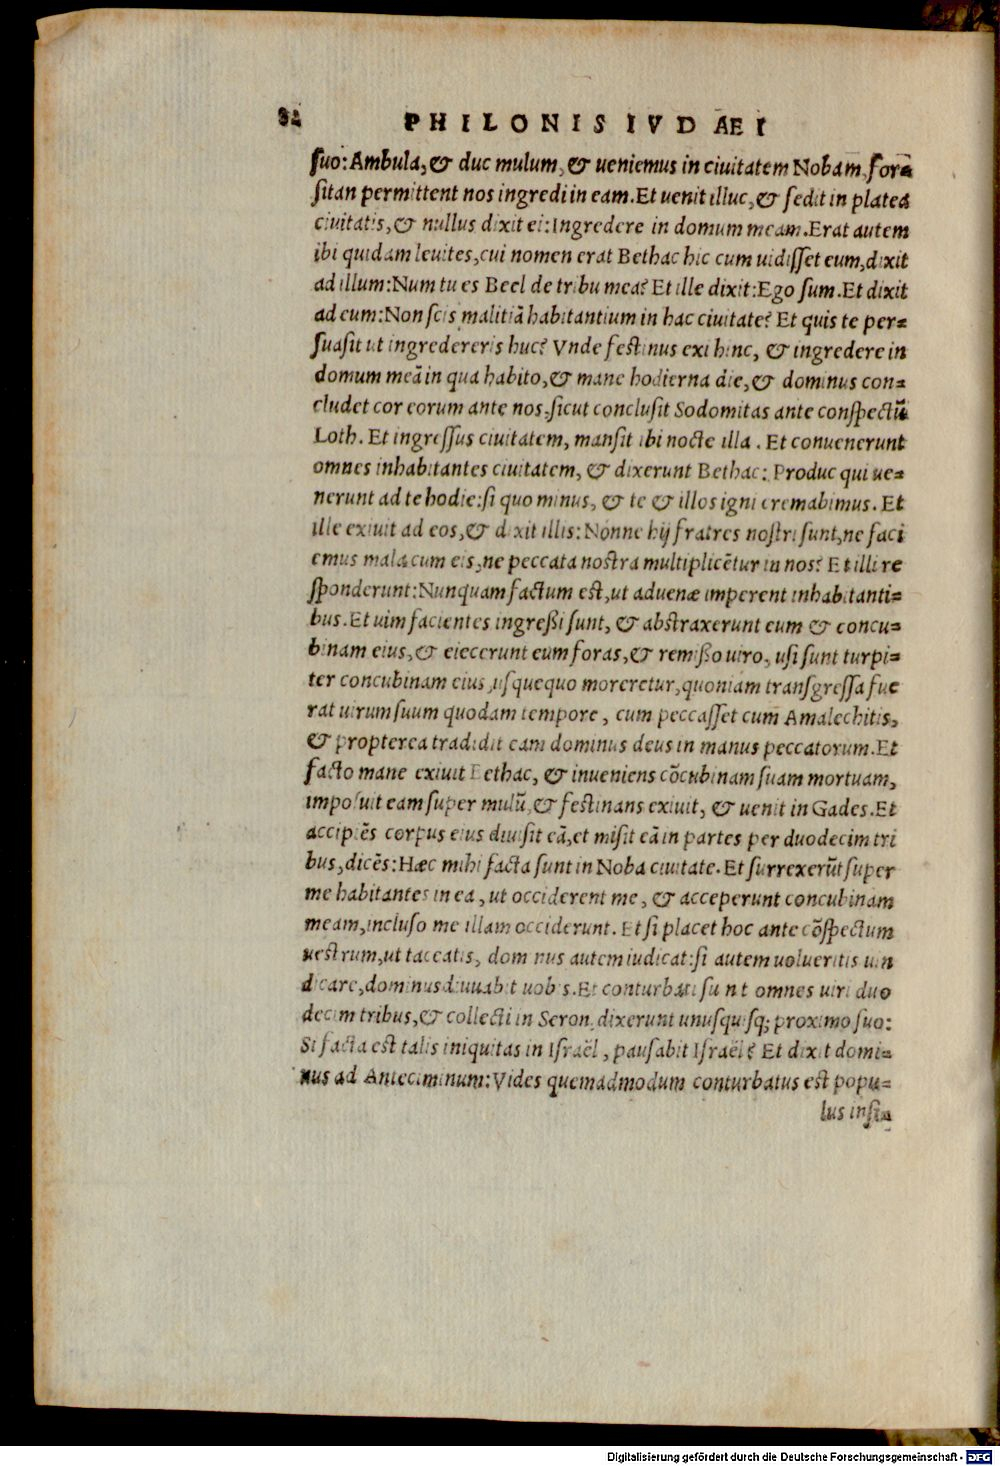 82
PHILONIS IVDÆI
ſuo: Ambula, & duc mulum, & ueniemus in ciuitatem Nobam, for=
ſitan permittent nos ingredi in eam. Et uenit illuc, & ſedit in platea
ciuitatis, & nullus dixit ei: Ingredere in domum meam. Erat autem
ibi quidam leuites, cui nomen erat Bethac hic cum uidiſſet eum, dixit
ad illum: Num tu es Beel de tribu mea? Et ille dixit: Ego ſum. Et dixit
ad eum: Non ſcis malitiā habitantium in hac ciuitate? Et quis te per=
ſuaſit ut ingredereris huc? Vnde feſtinus exi hinc, & ingredere in
domum meā in qua habito, & mane hodierna die, & dominus con=
cludet cor eorum ante nos, ſicut concluſit Sodomitas ante conſpectū
Loth. Et ingreſſus ciuitatem, manſit ibi nocte illa. Et conuenerunt
omnes inhabitantes ciuitatem, & dixerunt Bethac: Produc qui ue=
nerunt ad te hodie: ſi quo minus, & te & illos igni cremabimus. Et
ille exiuit ad eos, & dixit illis: Nonne hij fratres noſtri ſunt, ne faci
emus mala cum eis, ne peccata noſtra multiplicētur in nos? Et illi re
ſponderunt: Nunquam factum eſt, ut aduenæ imperent inhabitanti=
bus. Et uim facientes ingreßi ſunt, & abſtraxerunt eum & concu=
binam eius, & eiecerunt eum foras, & remißo uiro, uſi ſunt turpi=
ter concubinam eius, uſquequo moreretur, quoniam tranſgreſſa fue
rat uirum ſuum quodam tempore, cum peccaſſet cum Amalechitis,
& propterea tradidit eam dominus deus in manus peccatorum. Et
facto mane exiuit Bethac, & inueniens cōcubinam ſuam mortuam,
impoſuit eam ſuper mulū, & feſtinans exiuit, & uenit in Gades. Et
accipiēs corpus eius diuiſit eā, et miſit eā in partes per duodecim tri
bus, dicēs: Hæc mihi facta ſunt in Noba ciuitate. Et ſurrexerūt ſuper
me habitantes in ea, ut occiderent me, & acceperunt concubinam
meam, incluſo me illam occiderunt. Et ſi placet hoc ante cōſpectum
ueſtrum, ut taceatis, dominus autem iudicat: ſi autem uolueritis uin
dicare, dominus adiuuabit uobis. Et conturbati ſunt omnes uiri duo
decim tribus, & collecti in Seron, dixerunt unuſquiſq; proximo ſuo:
Si facta eſt talis iniquitas in Iſraël, pauſabit Iſraël? Et dixit domi=
nus ad Anteciminum: Vides quemadmodum conturbatus eſt popu=
lus inſi=
Digitalisierung gefördert durch die Deutsche Forschungsgemeinschaft - DFG